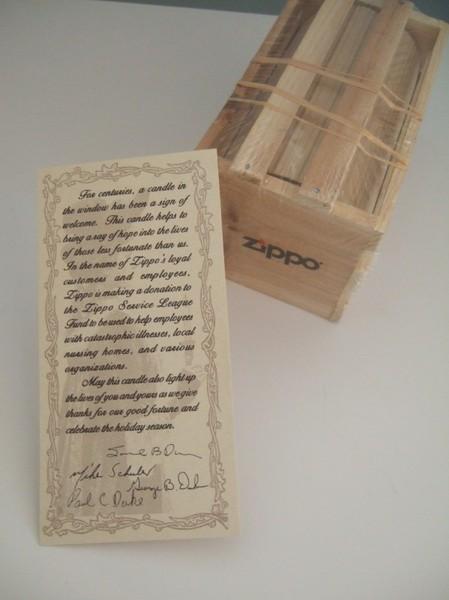 zippo
For centuries, a candle in
the window has been a sign of
welcome. This candle helps to
bring a ray of hope into the lives
of those less fortunate than us.
In the name of Zippo's loyal
customers and employees,
Zippo is making a donation to
the Zippo Service League
Fund to be used to help employees
with catastrophic illnesses, local
nursing homes, and various
organizations.
May this candle also light up
the lives of you and yours as we give
thanks for our good fortune and
celebrate the holiday season.
B.
Mike Schuler
George B. Duke
Paul C Duke